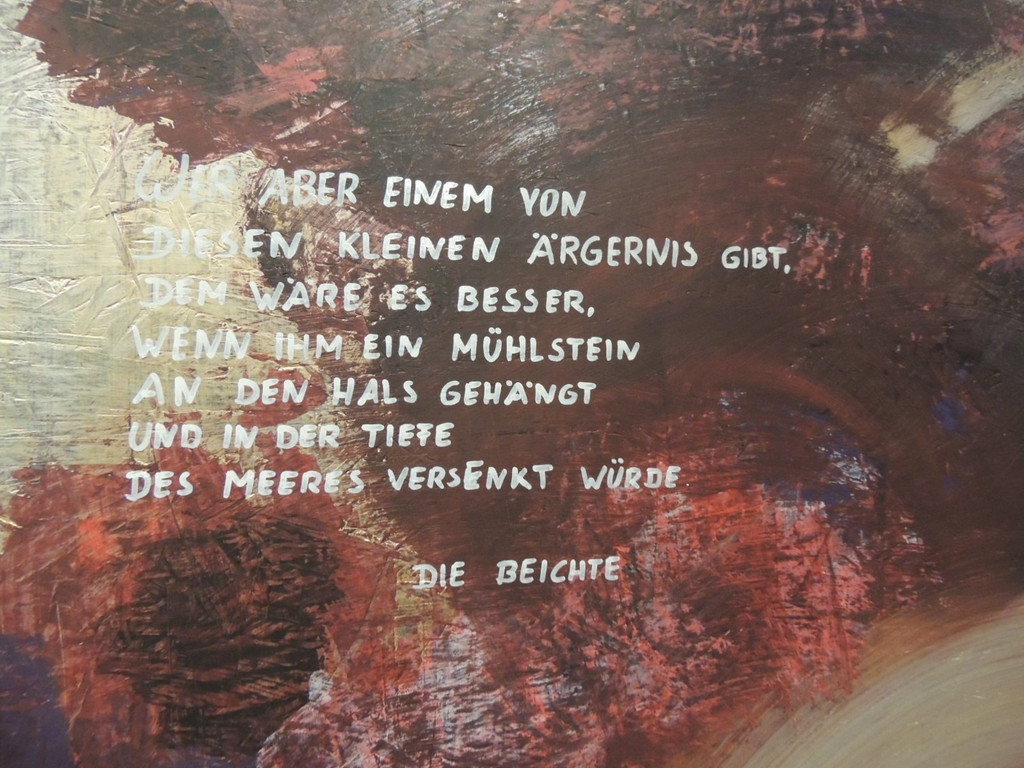 WER ABER EINEM VON
DIESEN KLEINEN ÄRGERNIS GIBT,
DEM WÄRE ES BESSER,
WENN IHM EIN MÜHLSTEIN
AN DEN HALS GEHÄNGT
UND IN DER TIEFE
DES MEERES VERSENKT WÜRDE
DIE BEICHTE